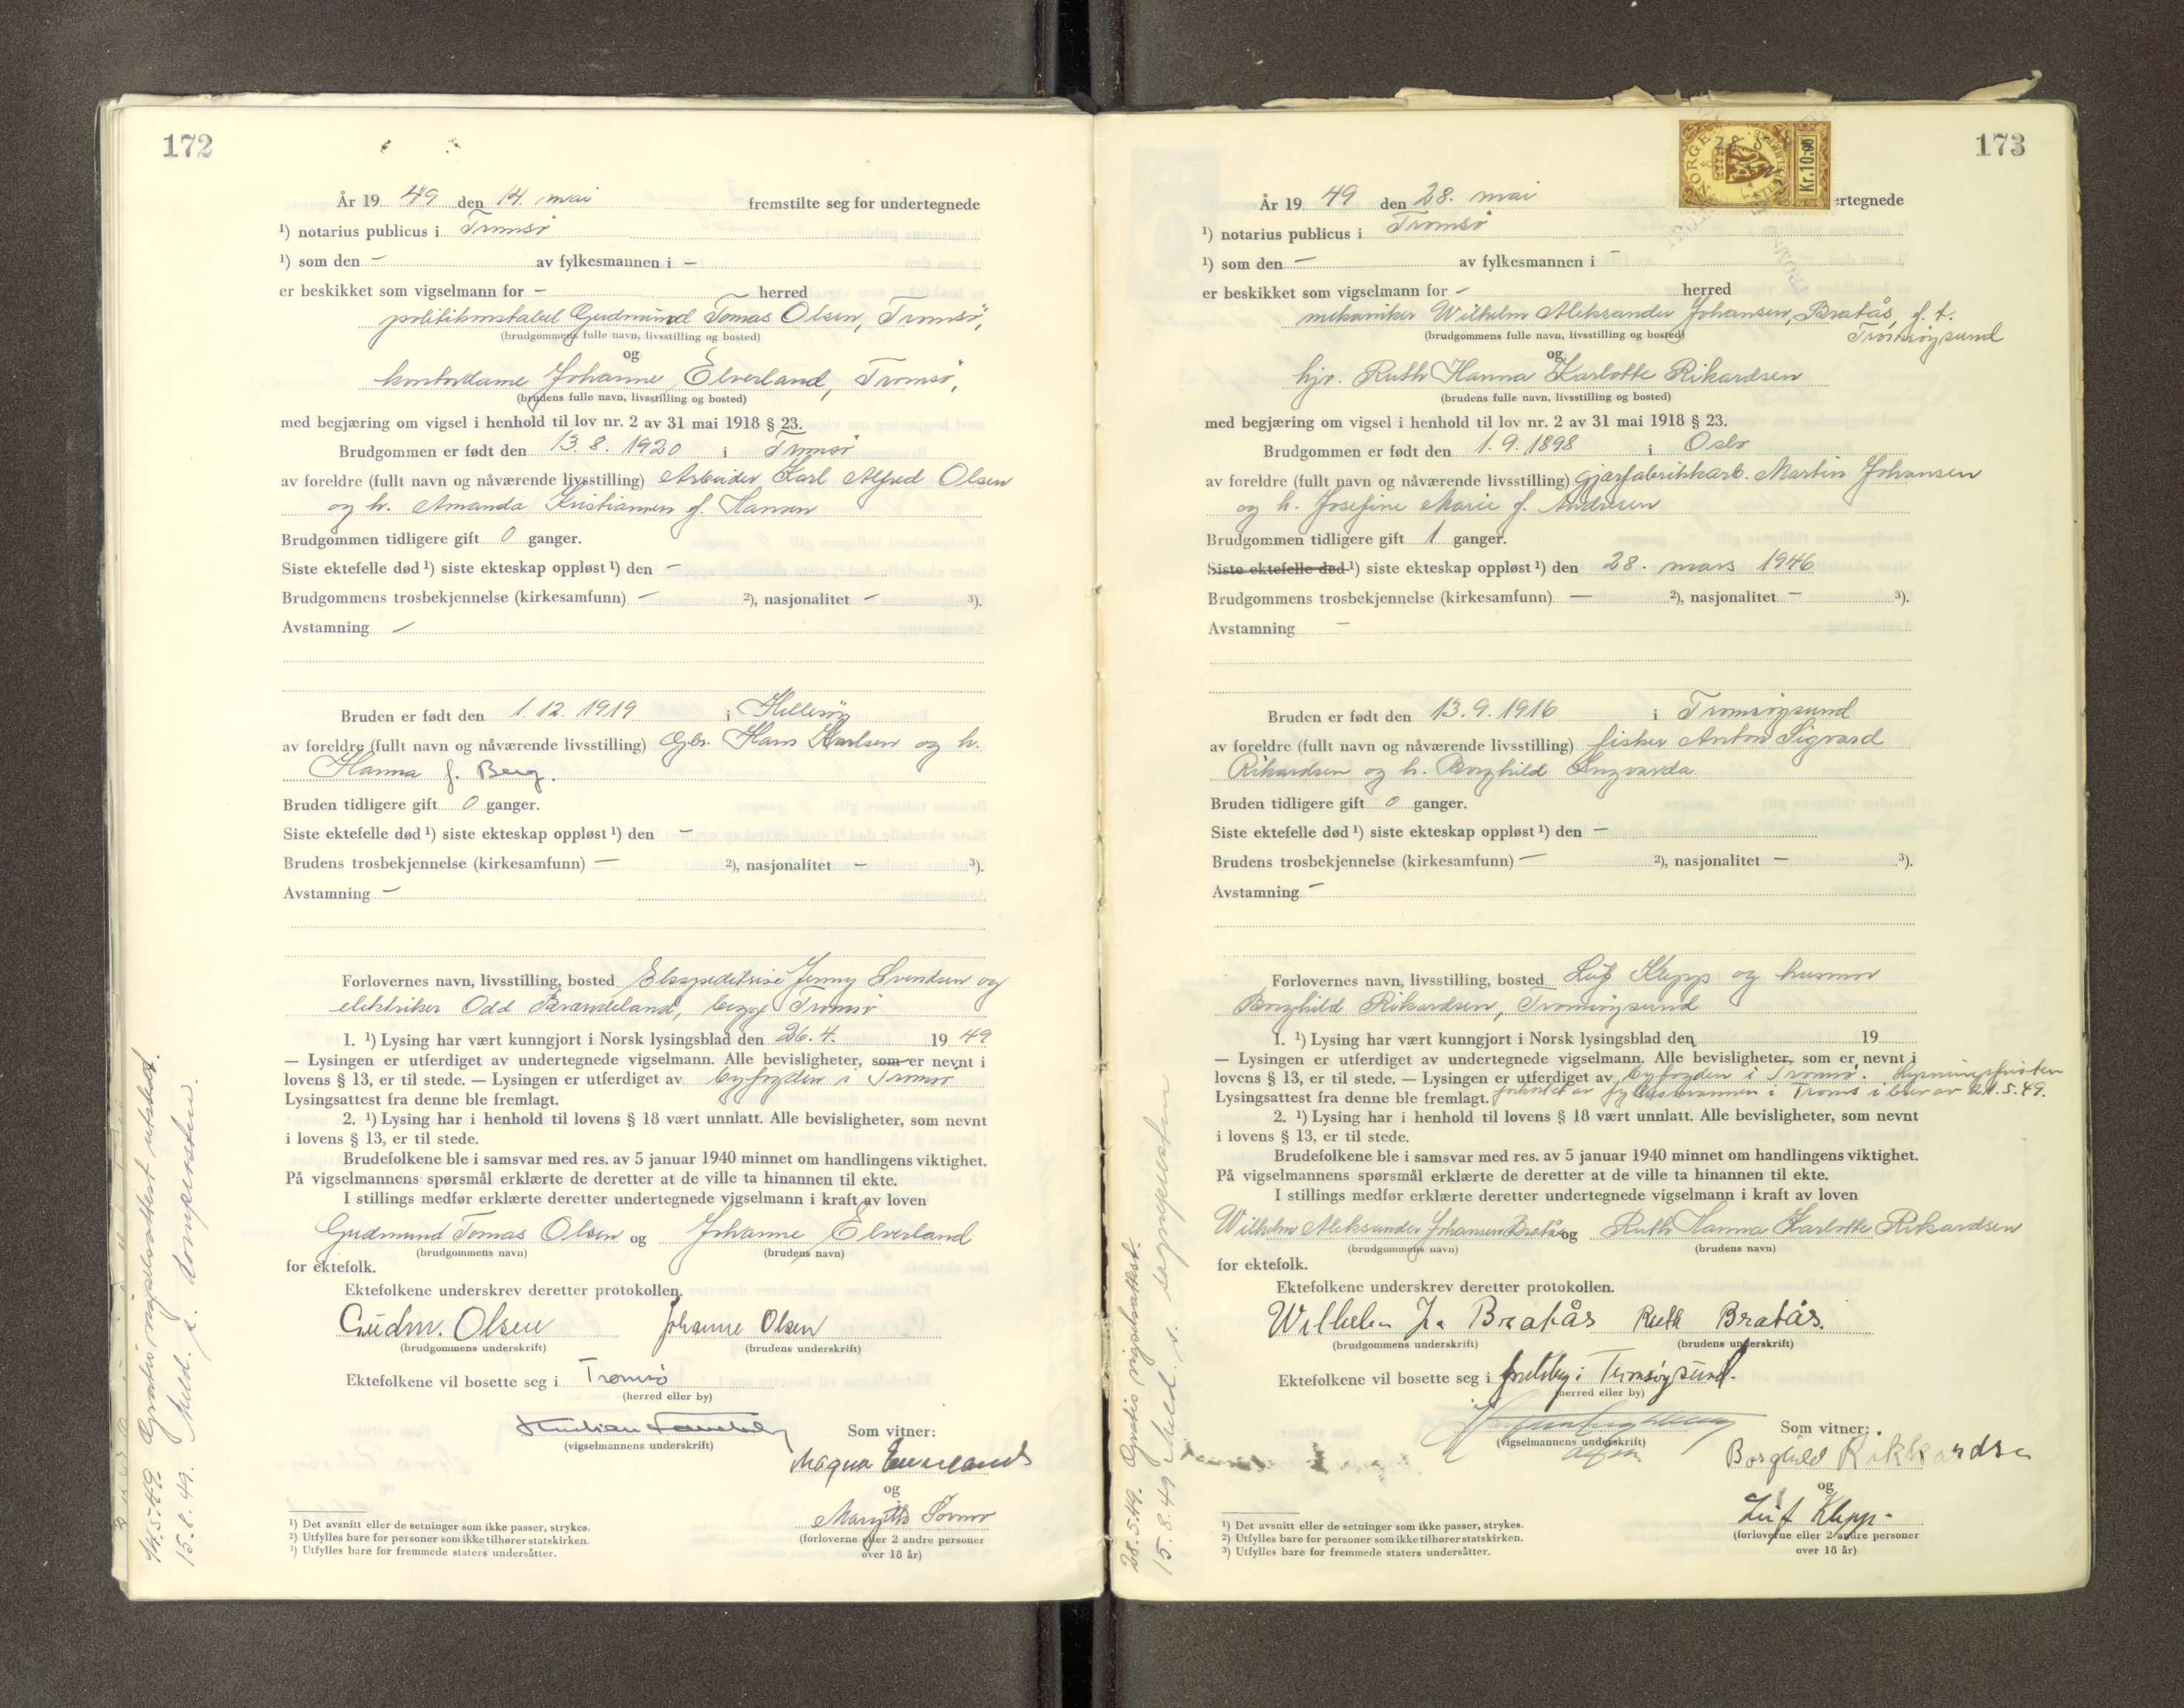 172
År 19 49 den 14. mai fremstilte seg for undertegnede
¹) notarius publicus i Tromsø
¹) som den – av fylkesmannen i –
er beskikket som vigselmann for – herred
politikonstabel Gudmund Tomas Olsen, Tromsø,
(brudgommens fulle navn, livsstilling og bosted)
og
kontordame Johanne Elverland, Tromsø,
(brudens fulle navn, livsstilling og bosted)
med begjæring om vigsel i henhold til lov nr. 2 av 31 mai 1918 § 23.
Brudgommen er født den 13. 8. 1920 i Tromsø
av foreldre (fullt navn og nåværende livsstilling) Arbeider Karl Alfred Olsen
og h. Amanda Kristiansen f. Hansen
Brudgommen tidligere gift 0 ganger.
Siste ektefelle død ¹) siste ekteskap oppløst ¹) den –
Brudgommens trosbekjennelse (kirkesamfunn) – ²), nasjonalitet – ³).
Avstamning –
Bruden er født den 1. 12. 1919 i Hillesøy
av foreldre (fullt navn og nåværende livsstilling) Gbr. Hans Karlsen og h.
Hanna f. Berg.
Bruden tidligere gift 0 ganger.
Siste ektefelle død ¹) siste ekteskap oppløst ¹) den –
Brudens trosbekjennelse (kirkesamfunn) – ²), nasjonalitet – ³).
Avstamning –
Forlovernes navn, livsstilling, bosted Ekspeditrise Jenny Svendsen og
elektriker Odd Brandeland, begge Tromsø
1. ¹) Lysing har vært kunngjort i Norsk lysingsblad den 26. 4. 19 49
— Lysingen er utferdiget av undertegnede vigselmann. Alle bevisligheter, som er nevnt i
lovens § 13, er til stede. — Lysingen er utferdiget av byfogden i Tromsø
Lysingsattest fra denne ble fremlagt.
2. ¹) Lysing har i henhold til lovens § 18 vært unnlatt. Alle bevisligheter, som nevnt
i lovens § 13, er til stede.
Brudefolkene ble i samsvar med res. av 5 januar 1940 minnet om handlingens viktighet.
På vigselmannens spørsmål erklærte de deretter at de ville ta hinannen til ekte.
I stillings medfør erklærte deretter undertegnede vigselmann i kraft av loven
Gudmund Tomas Olsen og Johanne Elverland
(brudgommens navn) (brudens navn)
for ektefolk.
Ektefolkene underskrev deretter protokollen.
Gudm. Olsen Johanne Olsen
(brudgommens underskrift) (brudens underskrift)
Ektefolkene vil bosette seg i Tromsø
(herred eller by)
Som vitner:
(vigselmannens underskrift)
Magna
og
Margith
(forloverne eller 2 andre personer
over 18 år)
¹) Det avsnitt eller de setninger som ikke passer, strykes.
²) Utfylles bare for personer som ikke tilhører statskirken.
³) Utfylles bare for fremmede staters undersåtter.
14.5.49. Gratis vigselsattest utstedt.
15.8.49. Meld. s. domprosten.
173
NORGE
Kr. 10.00
År 19 49 den 28. mai ertegnede
¹) notarius publicus i Tromsø
¹) som den – av fylkesmannen i –
er beskikket som vigselmann for – herred
mekaniker Wilhelm Aleksander Johansen, Bratås, f. t.
Tromsøysund
(brudgommens fulle navn, livsstilling og bosted)
og
hjv. Ruth Hanna Karlotte Rikardsen
(brudens fulle navn, livsstilling og bosted)
med begjæring om vigsel i henhold til lov nr. 2 av 31 mai 1918 § 23.
Brudgommen er født den 1. 9. 1898 i Oslo
av foreldre (fullt navn og nåværende livsstilling) gjærfabrikkarb. Martin Johansen
og h. Josefine Marie f. Andresen
Brudgommen tidligere gift 1 ganger.
Siste ektefelle død ¹) siste ekteskap oppløst ¹) den 28. mars 1946
Brudgommens trosbekjennelse (kirkesamfunn) — ²), nasjonalitet – ³).
Avstamning –
Bruden er født den 13. 9. 1916 i Tromsøysund
av foreldre (fullt navn og nåværende livsstilling) fisker Anton Sigvard
Rikardsen og h. Borghild Ingvarda
Bruden tidligere gift 0 ganger.
Siste ektefelle død ¹) siste ekteskap oppløst ¹) den –
Brudens trosbekjennelse (kirkesamfunn) – ²), nasjonalitet – ³).
Avstamning –
Forlovernes navn, livsstilling, bosted Leif Klepp og husmor
Borghild Rikardsen, Tromsøysund
1. ¹) Lysing har vært kunngjort i Norsk lysingsblad den 19
— Lysingen er utferdiget av undertegnede vigselmann. Alle bevisligheter, som er nevnt i
lovens § 13, er til stede. — Lysingen er utferdiget av byfogden i Tromsø. Lysningsfristen
Lysingsattest fra denne ble fremlagt. forkortet av fylkesmannen i Troms i brev av 21.5.49.
2. ¹) Lysing har i henhold til lovens § 18 vært unnlatt. Alle bevisligheter, som nevnt
i lovens § 13, er til stede.
Brudefolkene ble i samsvar med res. av 5 januar 1940 minnet om handlingens viktighet.
På vigselmannens spørsmål erklærte de deretter at de ville ta hinannen til ekte.
I stillings medfør erklærte deretter undertegnede vigselmann i kraft av loven
Wilhelm Aleksander Johansen Bratås og Ruth Hanna Karlotte Rikardsen
(brudgommens navn) (brudens navn)
for ektefolk.
Ektefolkene underskrev deretter protokollen.
Wilhelm J. Bratås Ruth Bratås.
(brudgommens underskrift) (brudens underskrift)
Ektefolkene vil bosette seg i Tromsøysund.
(herred eller by)
Som vitner:
(vigselmannens underskrift)
Borghild Rikkardse
og
Leif Klepp
(forloverne eller 2 andre personer
over 18 år)
¹) Det avsnitt eller de setninger som ikke passer, strykes.
²) Utfylles bare for personer som ikke tilhører statskirken.
³) Utfylles bare for fremmede staters undersåtter.
28.5.49. Gratis vigselsattest.
15.8.49 Meld. s. sognepresten